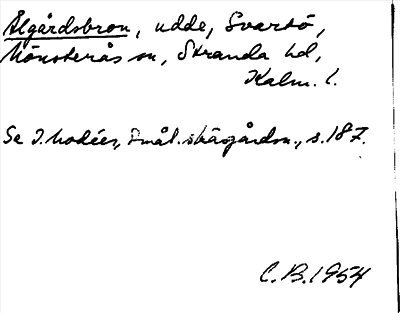 Ålgårdsbron, udde, Svartö,
Mönsterås sn, Stranda hd,
Kalm. l.
Se I. Modéer, Smål. skärgårdsn., s. 187.
C.B. 1954